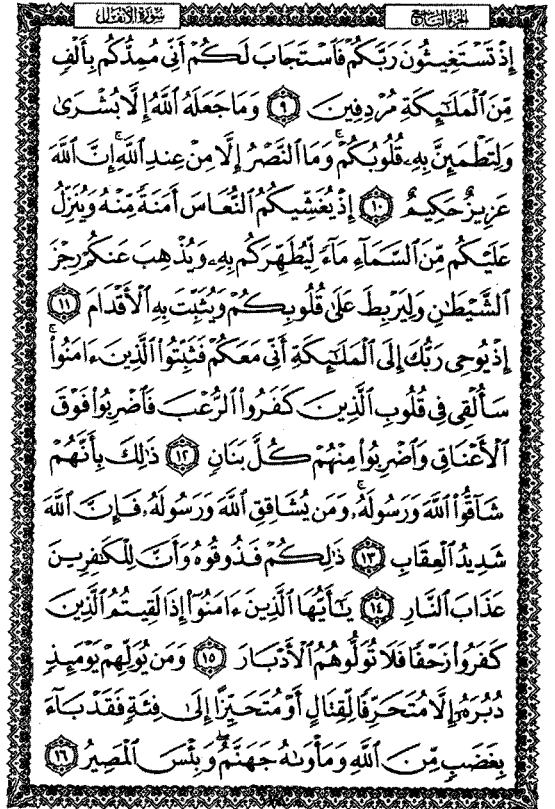 سورة الأنفال الجزء التاسع
إِذْ تَسْتَغِيثُونَ رَبَّكُمْ فَٱسْتَجَابَ لَكُمْ أَنِّى مُمِدُّكُم بِأَلْفٍ
مِّنَ ٱلْمَلَٰٓئِكَةِ مُرْدِفِينَ ٩ وَمَا جَعَلَهُ ٱللَّهُ إِلَّا بُشْرَىٰ
وَلِتَطْمَئِنَّ بِهِۦ قُلُوبُكُمْ ۚ وَمَا ٱلنَّصْرُ إِلَّا مِنْ عِندِ ٱللَّهِ ۚ إِنَّ ٱللَّهَ
عَزِيزٌ حَكِيمٌ ١٠ إِذْ يُغَشِّيكُمُ ٱلنُّعَاسَ أَمَنَةً مِّنْهُ وَيُنَزِّلُ
عَلَيْكُم مِّنَ ٱلسَّمَآءِ مَآءً لِّيُطَهِّرَكُم بِهِۦ وَيُذْهِبَ عَنكُمْ رِجْزَ
ٱلشَّيْطَٰنِ وَلِيَرْبِطَ عَلَىٰ قُلُوبِكُمْ وَيُثَبِّتَ بِهِ ٱلْأَقْدَامَ ١١
إِذْ يُوحِى رَبُّكَ إِلَى ٱلْمَلَٰٓئِكَةِ أَنِّى مَعَكُمْ فَثَبِّتُوا۟ ٱلَّذِينَ ءَامَنُوا۟ ۚ
سَأُلْقِى فِى قُلُوبِ ٱلَّذِينَ كَفَرُوا۟ ٱلرُّعْبَ فَٱضْرِبُوا۟ فَوْقَ
ٱلْأَعْنَاقِ وَٱضْرِبُوا۟ مِنْهُمْ كُلَّ بَنَانٍ ١٢ ذَٰلِكَ بِأَنَّهُمْ
شَآقُّوا۟ ٱللَّهَ وَرَسُولَهُۥ ۚ وَمَن يُشَاقِقِ ٱللَّهَ وَرَسُولَهُۥ فَإِنَّ ٱللَّهَ
شَدِيدُ ٱلْعِقَابِ ١٣ ذَٰلِكُمْ فَذُوقُوهُ وَأَنَّ لِلْكَٰفِرِينَ
عَذَابَ ٱلنَّارِ ١٤ يَٰٓأَيُّهَا ٱلَّذِينَ ءَامَنُوٓا۟ إِذَا لَقِيتُمُ ٱلَّذِينَ
كَفَرُوا۟ زَحْفًا فَلَا تُوَلُّوهُمُ ٱلْأَدْبَارَ ١٥ وَمَن يُوَلِّهِمْ يَوْمَئِذٍ
دُبُرَهُۥٓ إِلَّا مُتَحَرِّفًا لِّقِتَالٍ أَوْ مُتَحَيِّزًا إِلَىٰ فِئَةٍ فَقَدْ بَآءَ
بِغَضَبٍ مِّنَ ٱللَّهِ وَمَأْوَىٰهُ جَهَنَّمُ ۖ وَبِئْسَ ٱلْمَصِيرُ ١٦